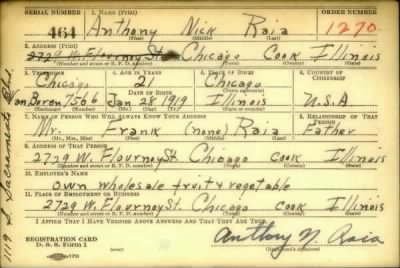 SERIAL NUMBER 1. NAME (Print) ORDER NUMBER
464 Anthony Nick Raia 1270.
(First) (Middle) (Last)
2. ADDRESS (Print)
2729 W. Flournoy St. Chicago Cook Illinois
(Number and street or R. F. D. number) (Town) (County) (State)
3. TELEPHONE 4. AGE IN YEARS 5. PLACE OF BIRTH 6. COUNTRY OF CITIZENSHIP
Chicago 21 Chicago
DATE OF BIRTH
Van Buren 7566 Jan 28 1919 Illinois U.S.A
(Exchange) (Number) (Mo.) (Day) (Yr.) (State or country)
7. NAME OF PERSON WHO WILL ALWAYS KNOW YOUR ADDRESS 8. RELATIONSHIP OF THAT PERSON
Mr. Frank (none) Raia Father
(Mr., Mrs., Miss) (First) (Middle) (Last)
9. ADDRESS OF THAT PERSON
2729 W. Flournoy St. Chicago Cook Illinois
(Number and street or R. F. D. number) (Town) (County) (State)
10. EMPLOYER'S NAME
Own wholesale fruit & vegetable
11. PLACE OF EMPLOYMENT OR BUSINESS
2729 W. Flournoy St. Chicago Cook Illinois
(Number and street or R. F. D. number) (Town) (County) (State)
I AFFIRM THAT I HAVE VERIFIED ABOVE ANSWERS AND THAT THEY ARE TRUE.
REGISTRATION CARD
D. S. S. Form 1
Anthony N Raia
(Registrant's signature)
1119 S. Sacramento